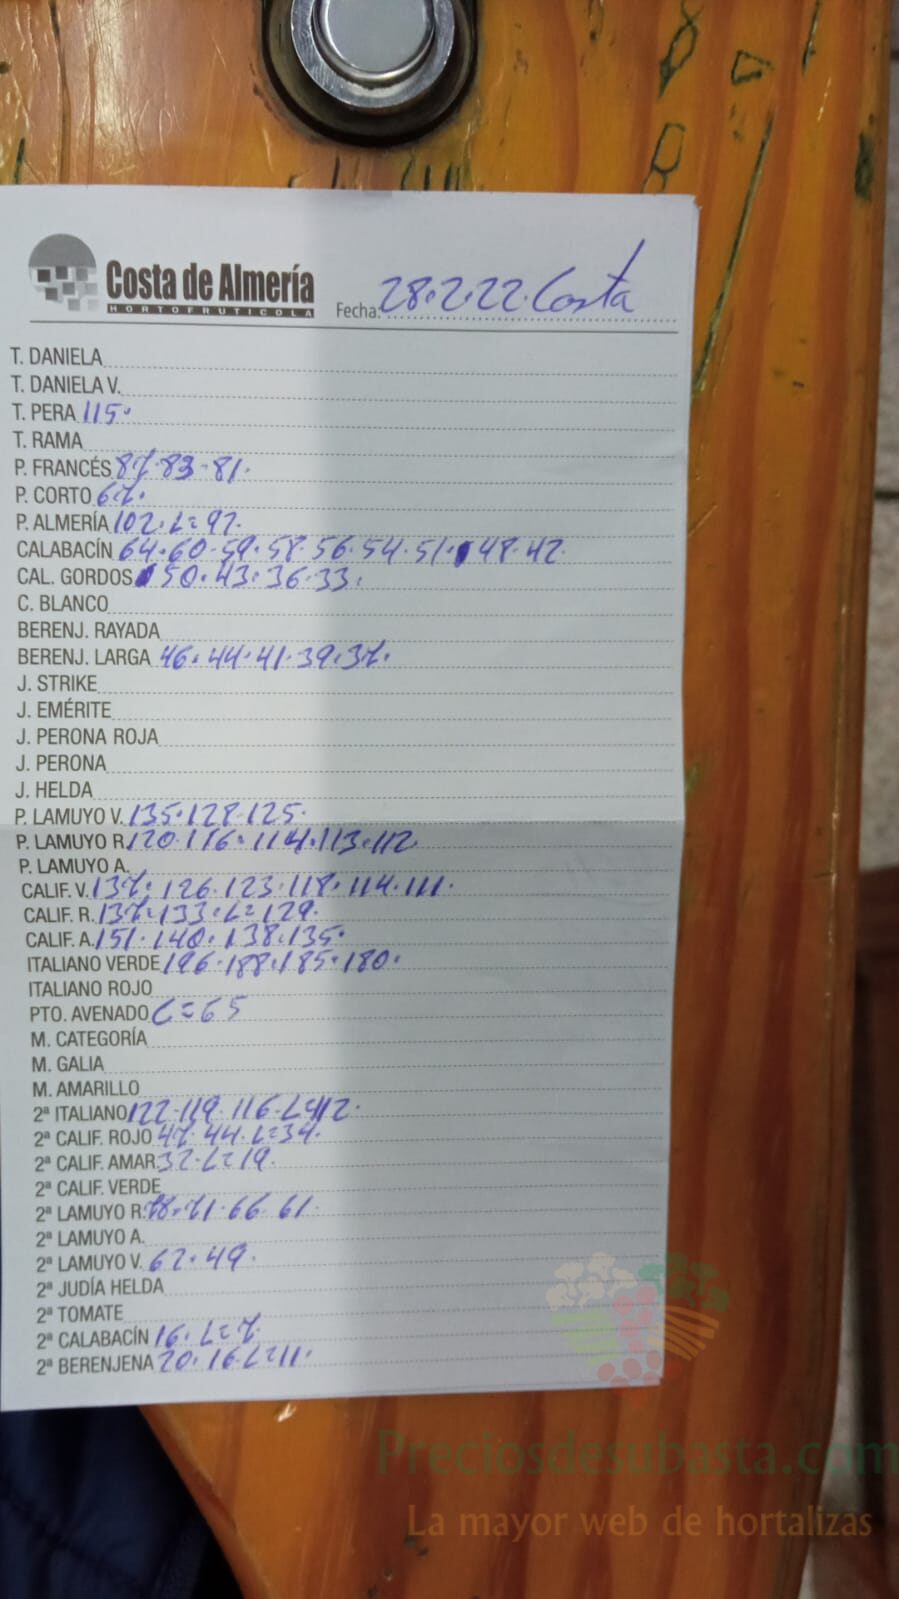 Costa de Almería
HORTOFRUTICOLA
Fecha: 28.2.22 Costa
T. DANIELA
T. DANIELA V.
T. PERA 115.
T. RAMA
P. FRANCÉS 87.83-81.
P. CORTO 67.
P. ALMERÍA 102.L=97.
CALABACÍN 64.60.59.58.56.54.51.48.42.
CAL. GORDOS 50.43.36.33.
C. BLANCO
BERENJ. RAYADA
BERENJ. LARGA 46.44.41.39.37.
J. STRIKE
J. EMÉRITE
J. PERONA ROJA
J. PERONA
J. HELDA
P. LAMUYO V. 135.128.125.
P. LAMUYO R. 120.116.114.113.112.
P. LAMUYO A.
CALIF. V. 137.126.123.118.114.111.
CALIF. R. 137.133.L=129.
CALIF. A. 151.140.138.135.
ITALIANO VERDE 196.188.185.180.
ITALIANO ROJO
PTO. AVENADO L=65
M. CATEGORÍA
M. GALIA
M. AMARILLO
2ª ITALIANO 122.119.116.L=112.
2ª CALIF. ROJO 47.44.L=34.
2ª CALIF. AMAR. 32.L=19.
2ª CALIF. VERDE
2ª LAMUYO R. 78.71.66.61.
2ª LAMUYO A.
2ª LAMUYO V. 62.49.
2ª JUDÍA HELDA
2ª TOMATE
2ª CALABACÍN 16.L=7.
2ª BERENJENA 20.16.L=11.
Preciosdesubasta.com
La mayor web de hortalizas